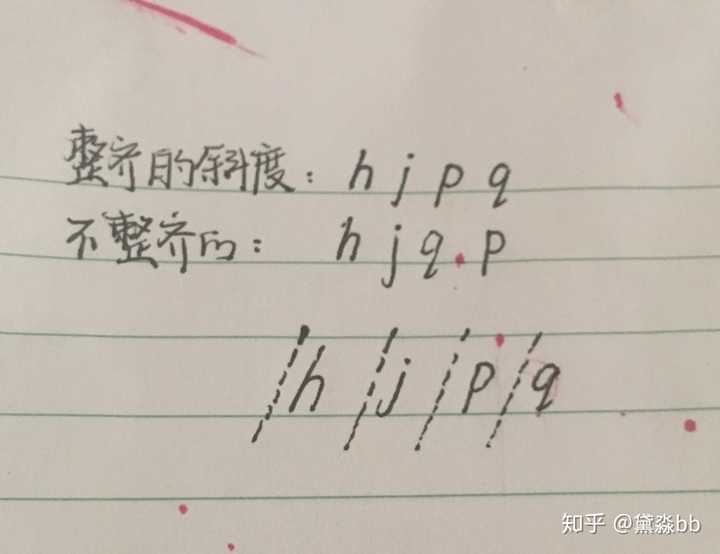 整齐的斜度：h j p q
不整齐的：h j q p
h j p q
知乎 @黛淼bb